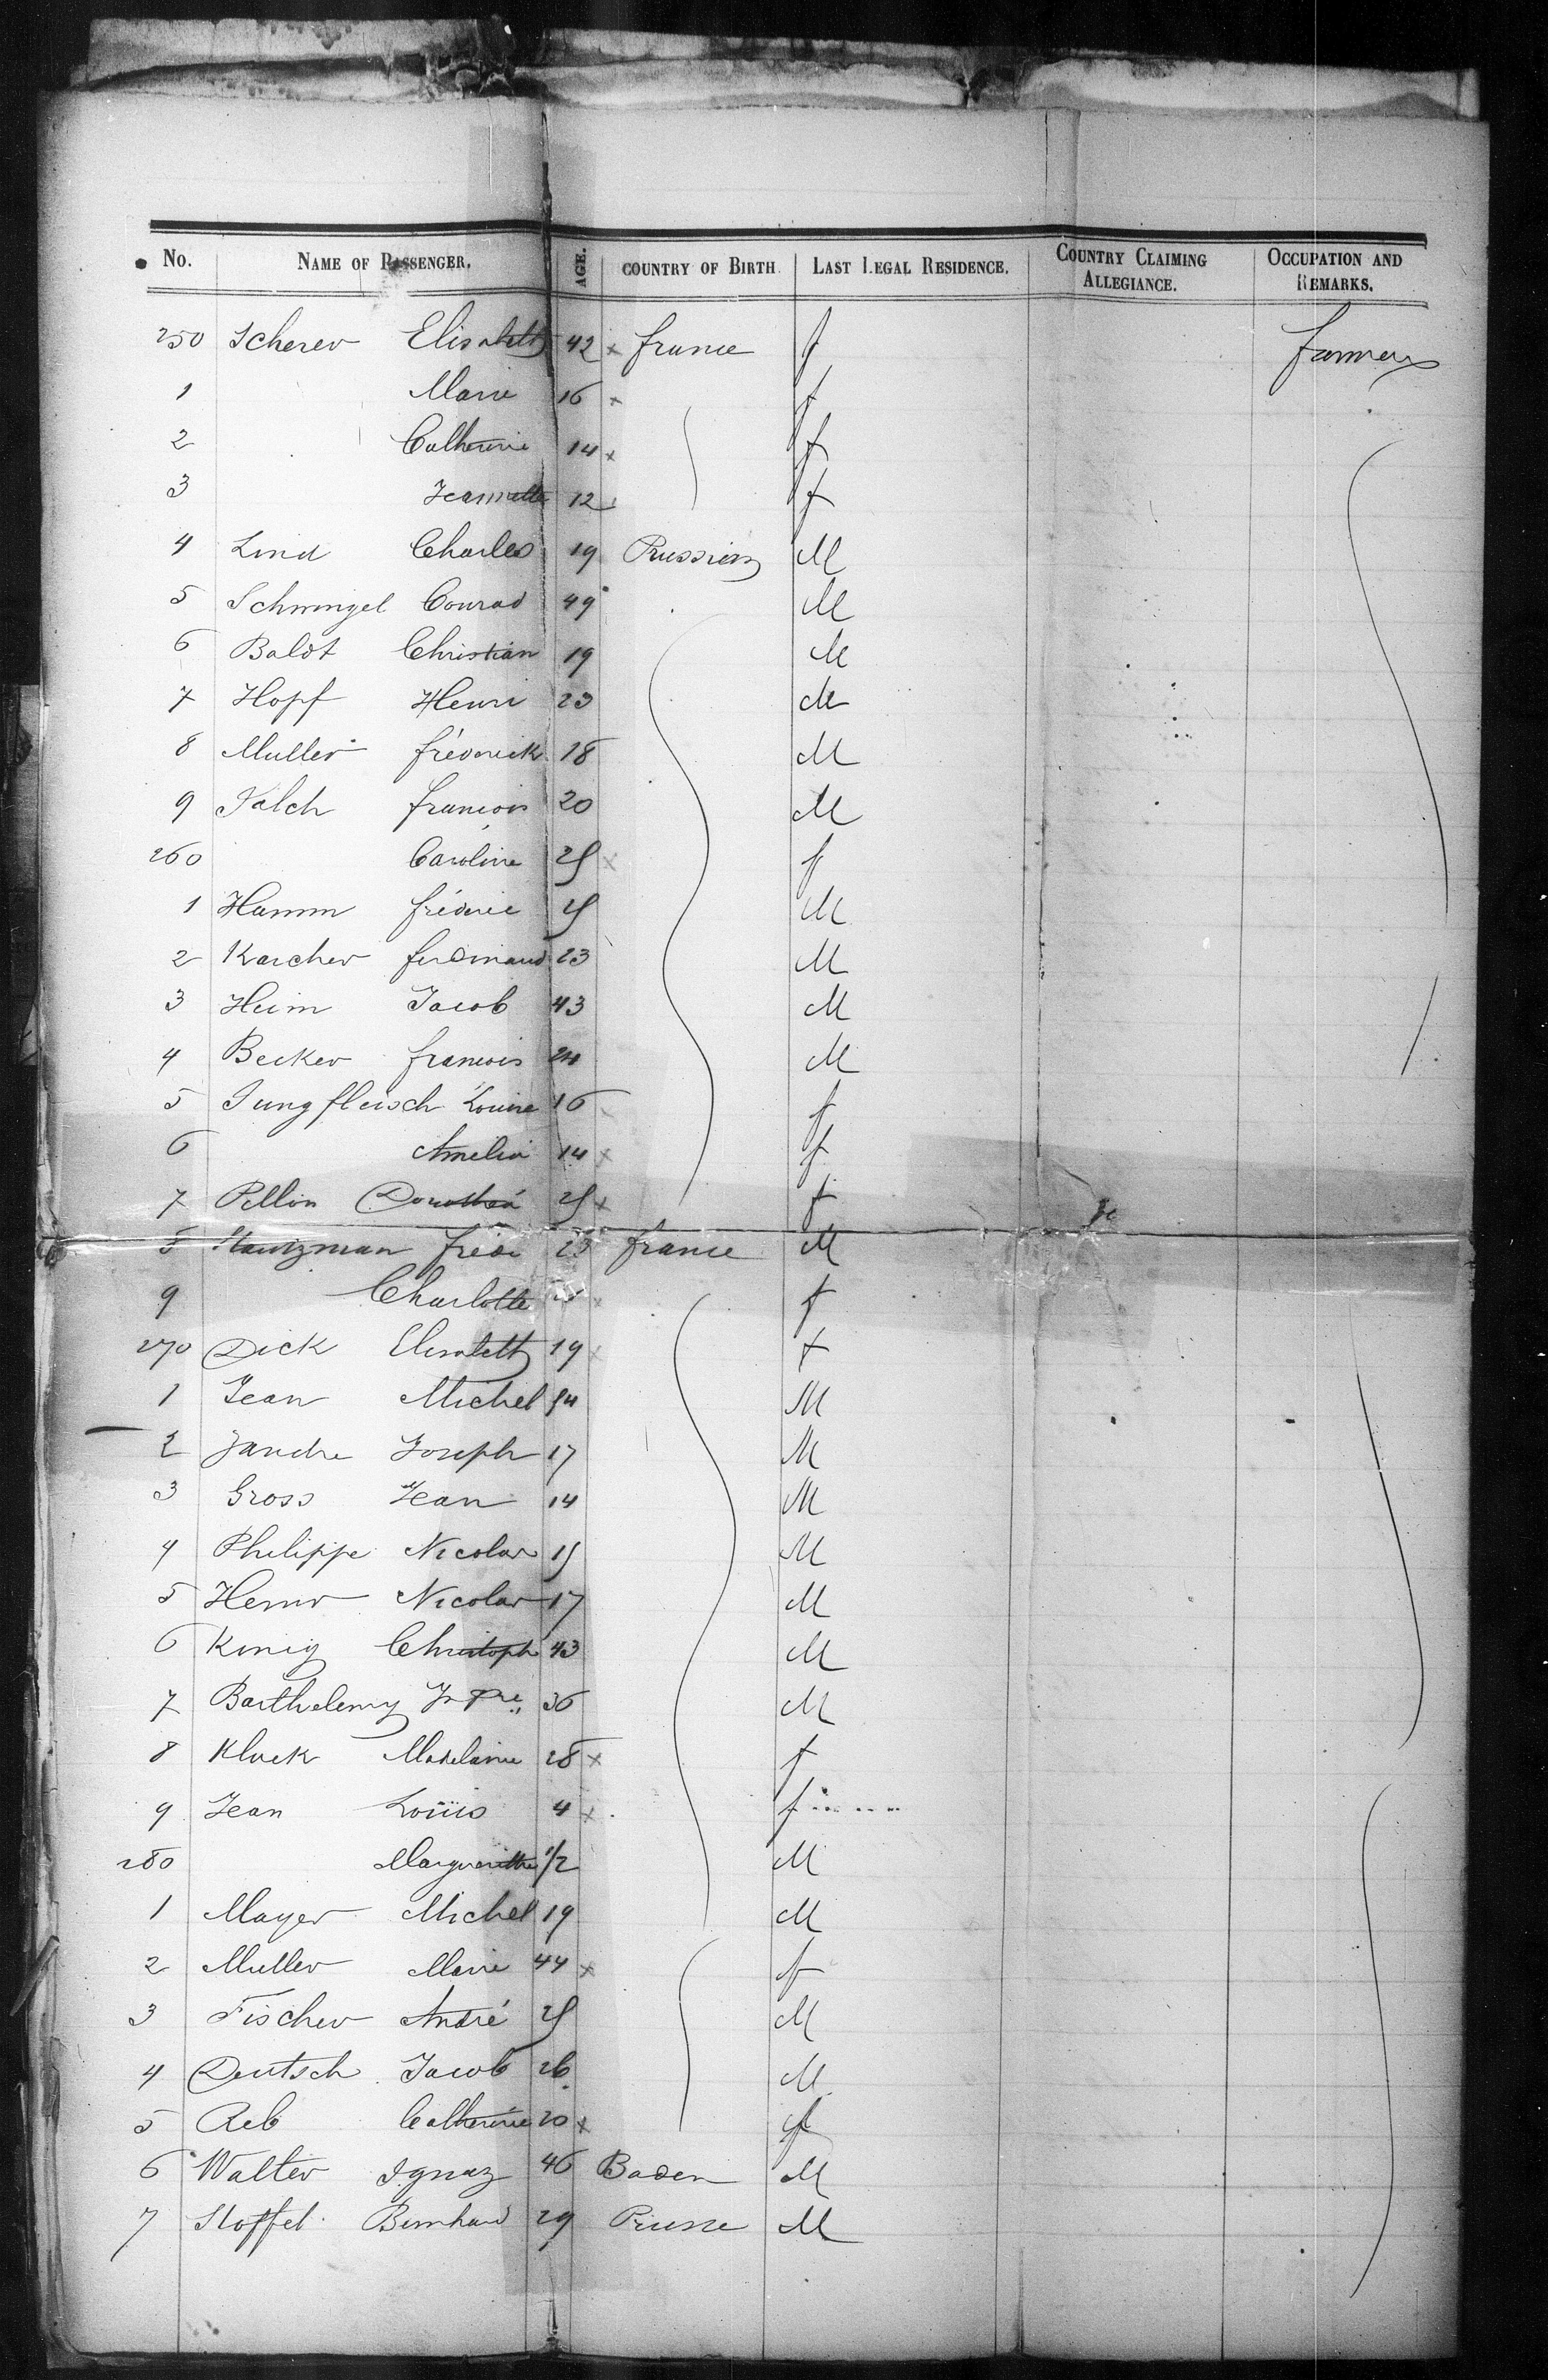 No. NAME OF PASSENGER. AGE. COUNTRY OF BIRTH LAST LEGAL RESIDENCE. COUNTRY CLAIMING ALLEGIANCE. OCCUPATION AND REMARKS.
250 Scherer Elisabeth 42 x france f farmers
1 Marie 16 x f
2 Catherine 14 x f
3 Jeannette 12 x f
4 Lind Charles 19 Prussien M
5 Schwingel Conrad 49 M
6 Baldt Christian 19 M
7 Hopf Henri 23 M
8 Muller fréderick 18 M
9 Salch francois 20 M
260 Caroline 25 x f
1 Hamm fréderic 25 M
2 Karcher ferdinand 23 M
3 Heim Jacob 43 M
4 Becker francois 24 M
5 Jungfleisch Louise 16 f
6 Amelia 14 x f
7 Pellon Dorothea 25 x f
8 fréd france M
9 Charlotte f
270 Dick Elisabeth 19 x f
1 Jean Michel 54 M
2 Jandre Joseph 17 M
3 Gross Jean 14 M
4 Philippe Nicolas 15 M
5 Nicolas 17 M
6 König Christoph 43 M
7 Barthelemy Jn Pre 36 M
8 Kluck Madelaine 28 x f
9 Jean Louis 4 x f
280 Marguerithe 1/2 M
1 Mayer Michel 19 M
2 Muller Marie 44 x f
3 Fischer André 25 M
4 Deutsch Jacob 26 M
5 Reb Catherine 20 x f
6 Walter Ignaz 46 Baden M
7 Stoffel Bernhard 29 Prusse M